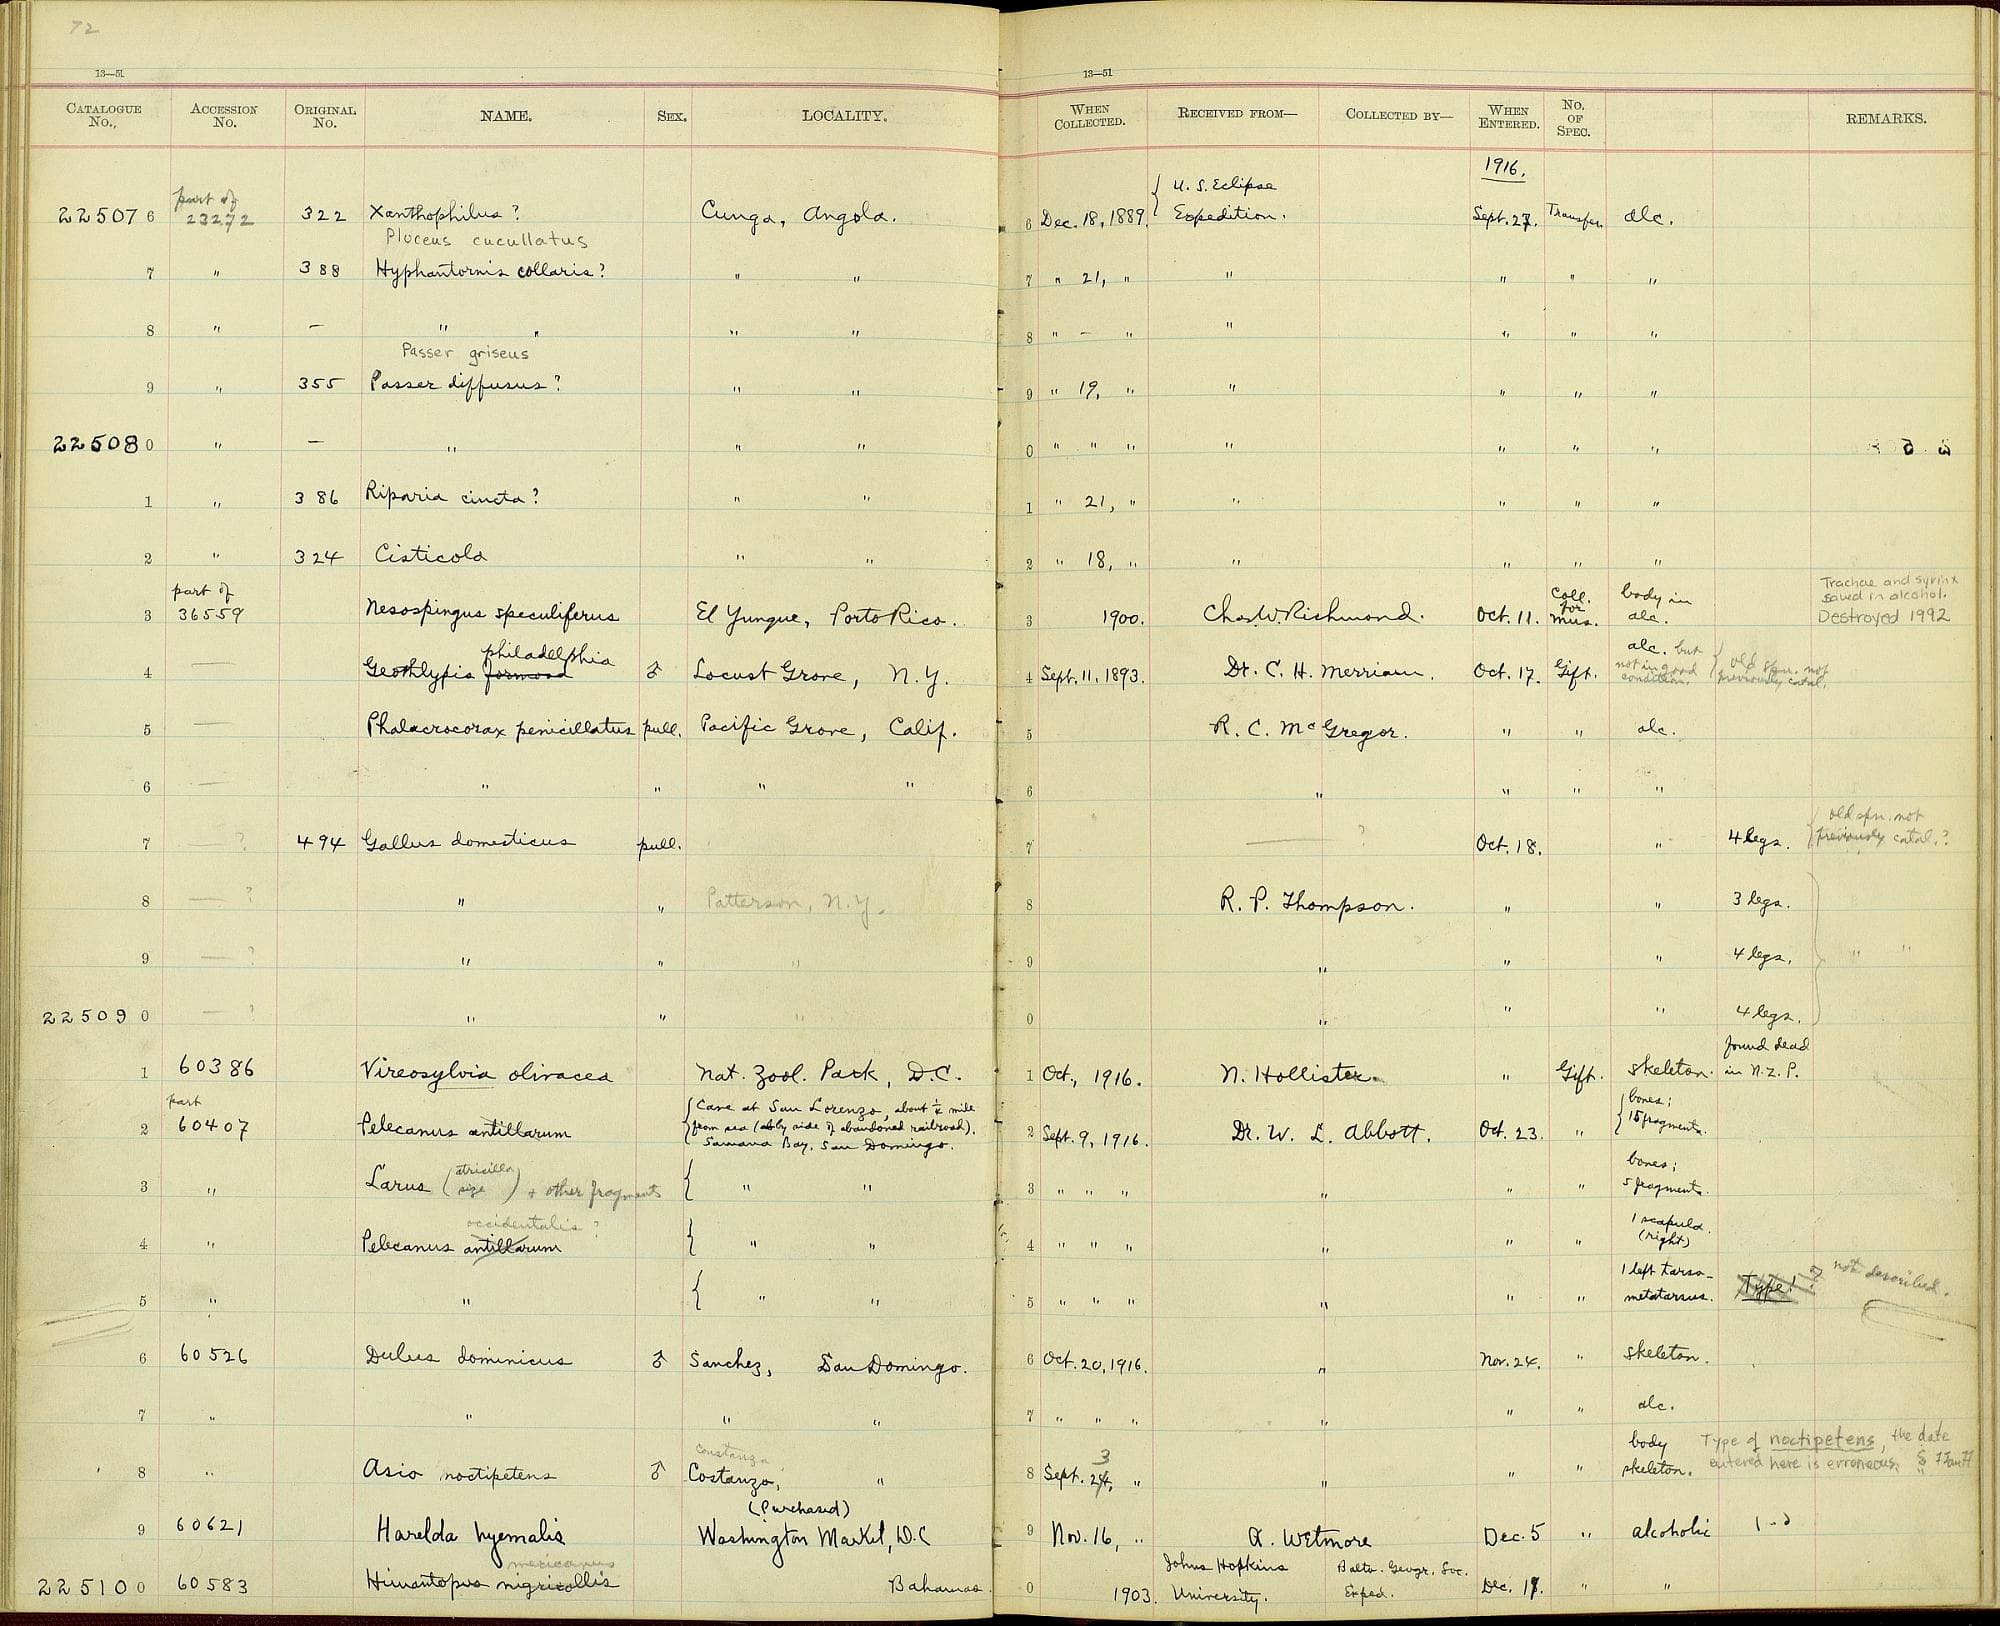 72
13—51 13—51
CATALOGUE No., ACCESSION No. ORIGINAL No. NAME. SEX. LOCALITY. WHEN COLLECTED. RECEIVED FROM— COLLECTED BY— WHEN ENTERED. No. OF SPEC. REMARKS.
1916.
part of U. S. Eclipse
225076 23272 322 Xanthophilus? Cunga, Angola. 6 Dec. 18, 1889. Expedition. Sept. 27. Transfer. alc.
Ploceus cucullatus
7 " 388 Hyphantornis collaris? " " 7 " 21, " " " " "
8 " — " " " " 8 " — " " " " "
Passer griseus
9 " 355 Passer diffusus? " " 9 " 19, " " " " "
225080 " — " " " 0 " " " " " " "
1 " 386 Riparia cincta? " " 1 " 21, " " " " "
2 " 324 Cisticola " " 2 " 18, " " " " "
part of Coll. for body in Trachae and syrinx saved in alcohol.
3 36559 Nesospingus speculiferus El Yunque, Porto Rico. 3 1900. Chas. W. Richmond. Oct. 11. mus. alc. Destroyed 1992
philadelphia alc. but
4 — Geothlypis formosa ♂ Locust Grove, N.Y. 4 Sept. 11, 1893. Dr. C. H. Merriam. Oct. 17. Gift. not in good condition. old spn. not previously catal.
5 — Phalacrocorax penicillatus pull. Pacific Grove, Calif. 5 R. C. McGregor. " " alc.
6 — " " " " 6 " " " "
7 — ? 494 Gallus domesticus pull. 7 — ? Oct. 18. " 4 legs. old spn. not previously catal.?
8 — ? " " Patterson, N.Y. 8 R. P. Thompson. " " 3 legs.
9 — ? " " " 9 " " " 4 legs. " "
225090 — ? " " " 0 " " " 4 legs.
found dead
1 60386 Vireosylvia olivacea Nat. Zool. Park, D.C. 1 Oct., 1916. N. Hollister. " Gift. skeleton. in N.Z.P.
part Cave at San Lorenzo, about ¼ mile bones;
2 60407 Pelecanus antillarum from sea (ably side of abandoned railroad). 2 Sept. 9, 1916. Dr. W. L. Abbott. Oct. 23. " 15 fragments.
Samana Bay, San Domingo.
bones;
3 " Larus (atricilla size) + other fragments " " 3 " " " " " " 5 fragments.
occidentalis ? 1 scapula.
4 " Pelecanus antillarum " " 4 " " " " " " (right)
1 left tarso- not described.
5 " " " " 5 " " " " " " metatarsus. Type! ?
6 60526 Dulus dominicus ♂ Sanchez, San Domingo. 6 Oct. 20, 1916. " Nov. 24. " skeleton.
7 " " " " 7 " " " " " " alc.
Constanza 3 body Type of noctipetens, the date
8 " Asio noctipetens ♂ Costanza, " 8 Sept. 24, " " " " skeleton. entered here is erroneous.
(Purchased)
9 60621 Harelda hyemalis Washington Market, D.C 9 Nov. 16, " A. Wetmore Dec. 5 " alcoholic
mexicanus Johns Hopkins Balto. Geogr. Soc.
225100 60583 Himantopus nigricollis Bahamas. 0 1903. University. Exped. Dec. 18. " "